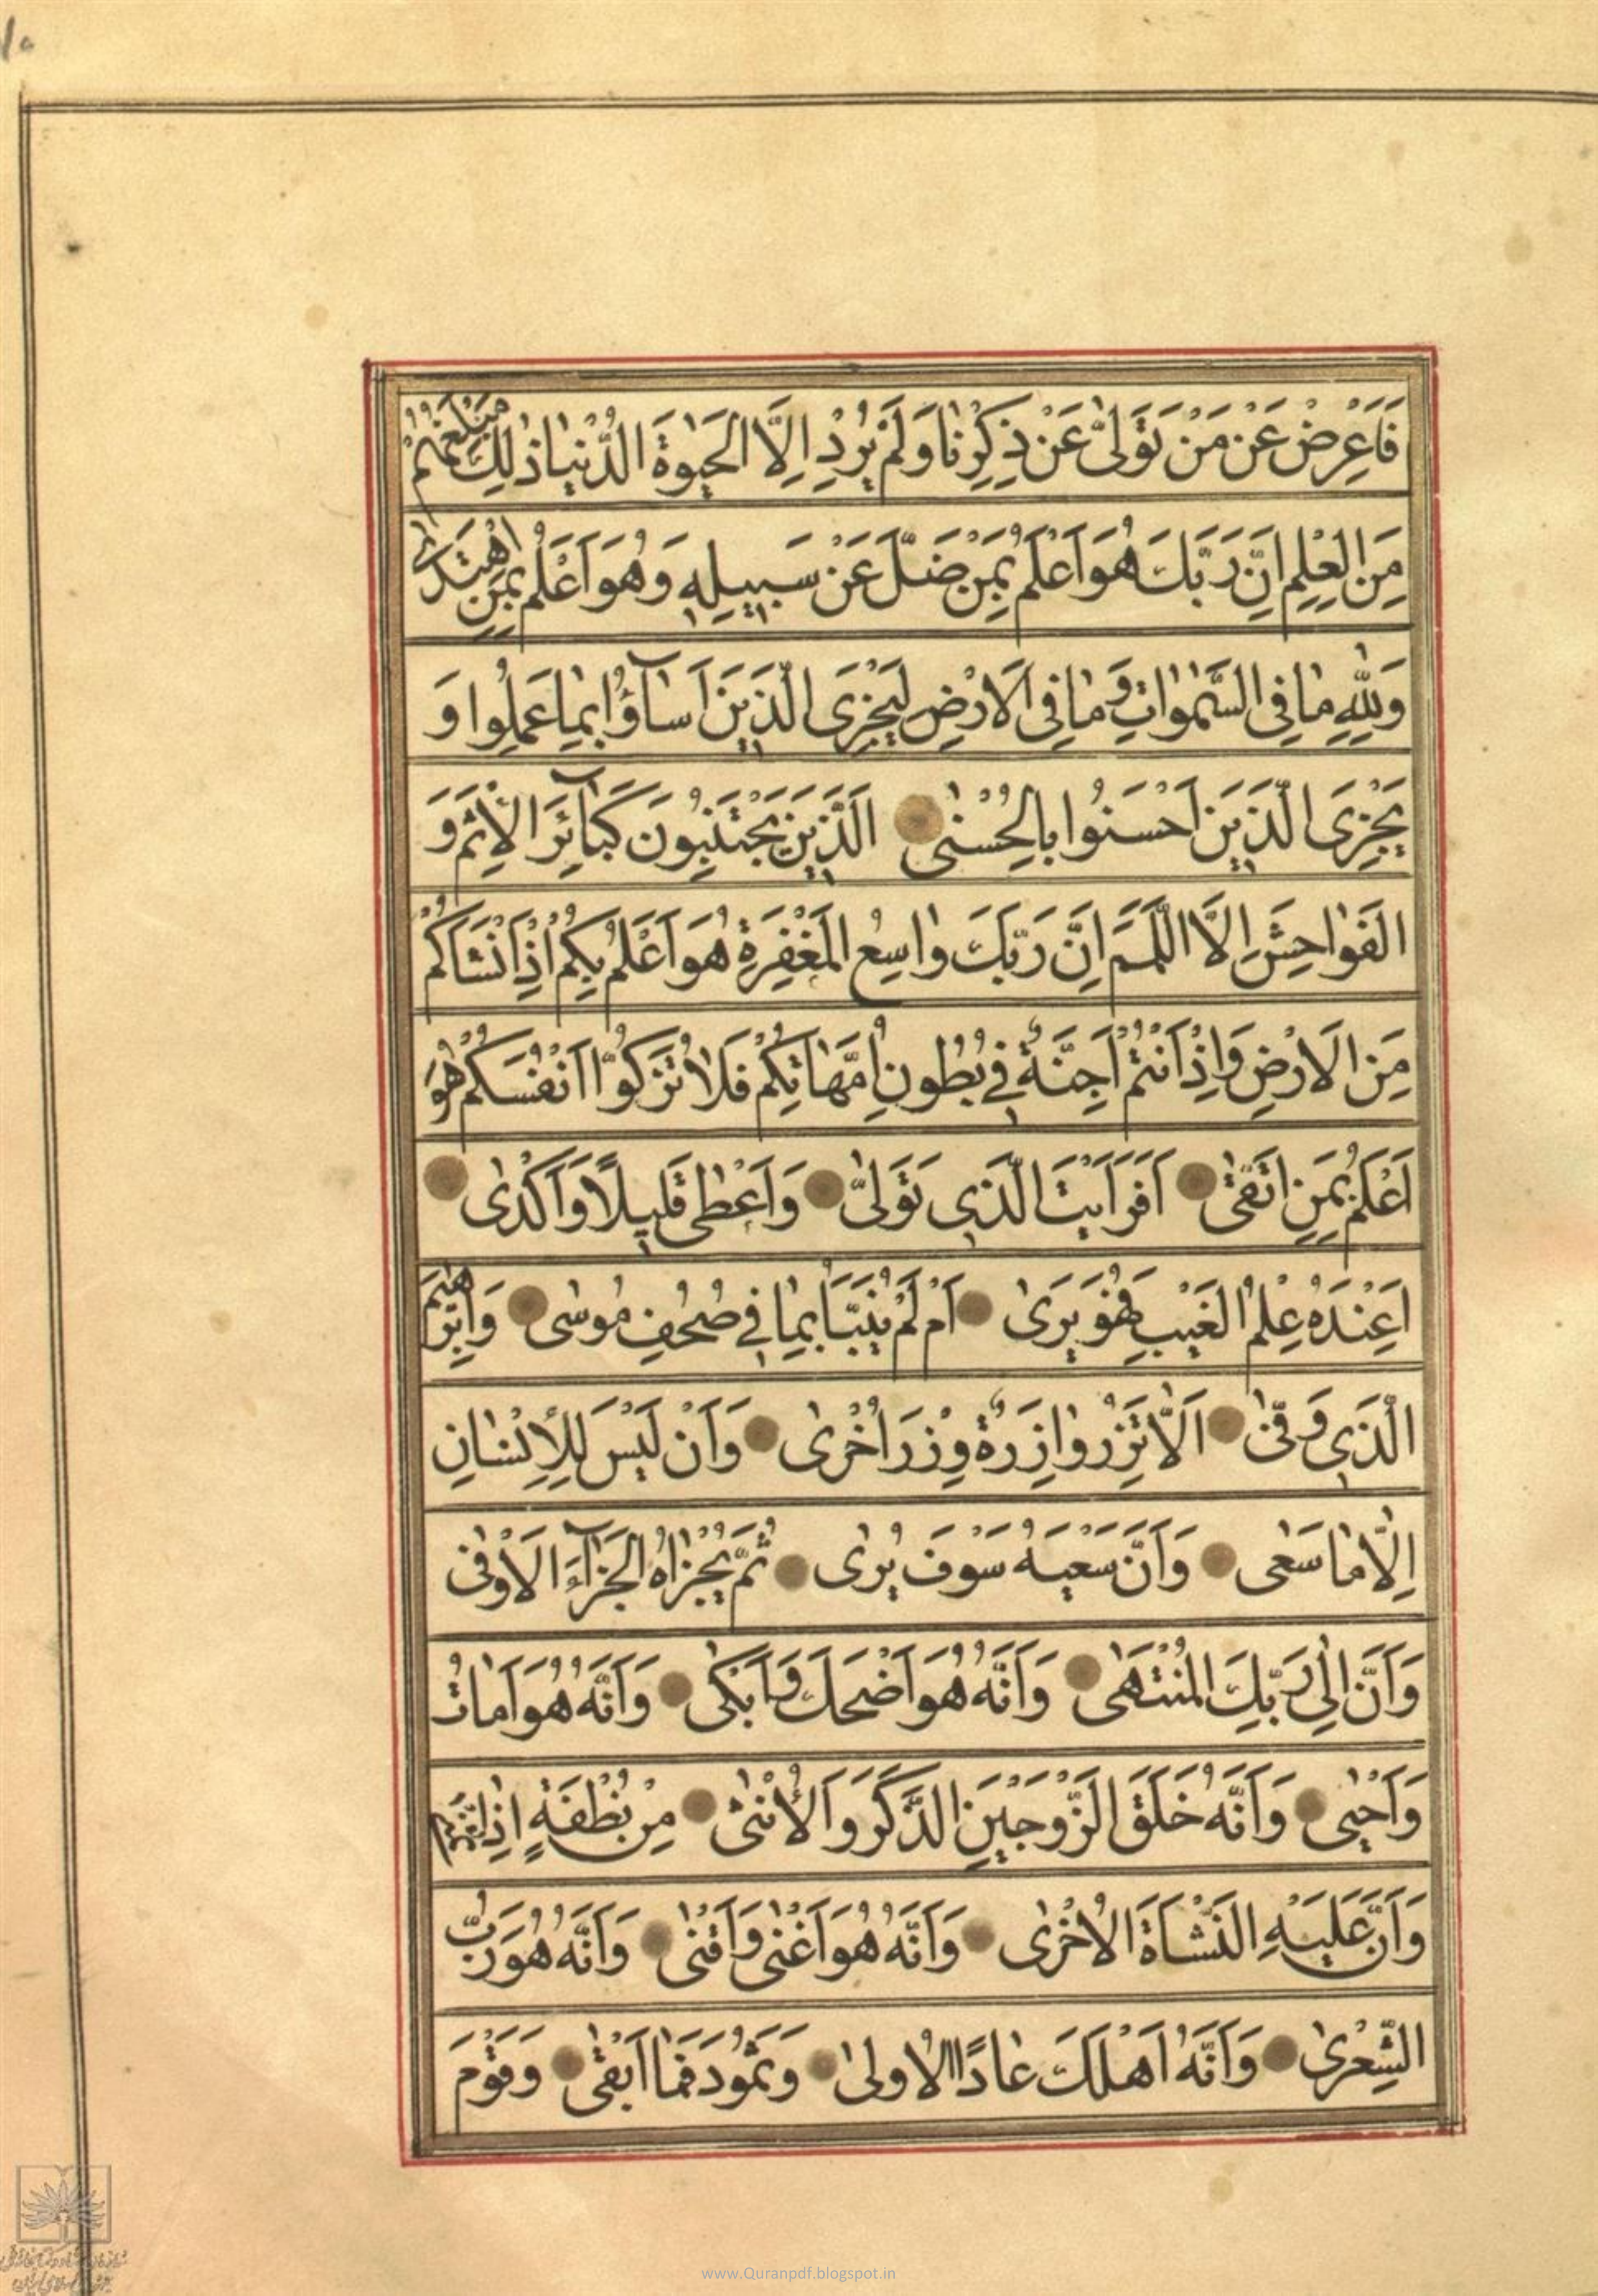 ۱۵
فَاَعْرِضْ عَنْ مَنْ تَوَلّٰى عَنْ ذِكْرِنٰا وَلَمْ يُرِدْ اِلَّا الْحَيٰوةَ الدُّنْيٰا ذٰلِكَ مَبْلَغُهُمْ
مِنَ الْعِلْمِ اِنَّ رَبَّكَ هُوَ اَعْلَمُ بِمَنْ ضَلَّ عَنْ سَبيلِهٖ وَهُوَ اَعْلَمُ بِمَنِ اهْتَدٰى
وَلِلّٰهِ مٰا فِى السَّمٰوٰاتِ وَمٰا فِى الْاَرْضِ لِيَجْزِىَ الَّذينَ اَسٰآؤُا بِمٰا عَمِلُوا وَ
يَجْزِىَ الَّذينَ اَحْسَنُوا بِالْحُسْنٰى اَلَّذينَ يَجْتَنِبُونَ كَبٰآئِرَ الْاِثْمِ وَ
الْفَوٰاحِشَ اِلَّا اللَّمَمَ اِنَّ رَبَّكَ وٰاسِعُ الْمَغْفِرَةِ هُوَ اَعْلَمُ بِكُمْ اِذْ اَنْشَاَكُمْ
مِنَ الْاَرْضِ وَاِذْ اَنْتُمْ اَجِنَّةٌ فى بُطُونِ اُمَّهٰاتِكُمْ فَلٰا تُزَكُّوٓا اَنْفُسَكُمْ هُوَ
اَعْلَمُ بِمَنِ اتَّقٰى اَفَرَاَيْتَ الَّذى تَوَلّٰى وَاَعْطٰى قَليلًا وَاَكْدٰى
اَعِنْدَهُ عِلْمُ الْغَيْبِ فَهُوَ يَرٰى اَمْ لَمْ يُنَبَّاْ بِمٰا فى صُحُفِ مُوسٰى وَاِبْرٰهيمَ
الَّذى وَفّٰى اَلَّا تَزِرُ وٰازِرَةٌ وِزْرَ اُخْرٰى وَاَنْ لَيْسَ لِلْاِنْسٰانِ
اِلَّا مٰا سَعٰى وَاَنَّ سَعْيَهُ سَوْفَ يُرٰى ثُمَّ يُجْزٰاهُ الْجَزٰآءَ الْاَوْفٰى
وَاَنَّ اِلٰى رَبِّكَ الْمُنْتَهٰى وَاَنَّهُ هُوَ اَضْحَكَ وَاَبْكٰى وَاَنَّهُ هُوَ اَمٰاتَ
وَاَحْيٰى وَاَنَّهُ خَلَقَ الزَّوْجَيْنِ الذَّكَرَ وَالْاُنْثٰى مِنْ نُطْفَةٍ اِذٰا تُمْنٰى
وَاَنَّ عَلَيْهِ النَّشْاَةَ الْاُخْرٰى وَاَنَّهُ هُوَ اَغْنٰى وَاَقْنٰى وَاَنَّهُ هُوَ رَبُّ
الشِّعْرٰى وَاَنَّهُ اَهْلَكَ عٰادًا الْاُولٰى وَثَمُودَ فَمٰا اَبْقٰى وَقَوْمَ
www.Quranpdf.blogspot.in